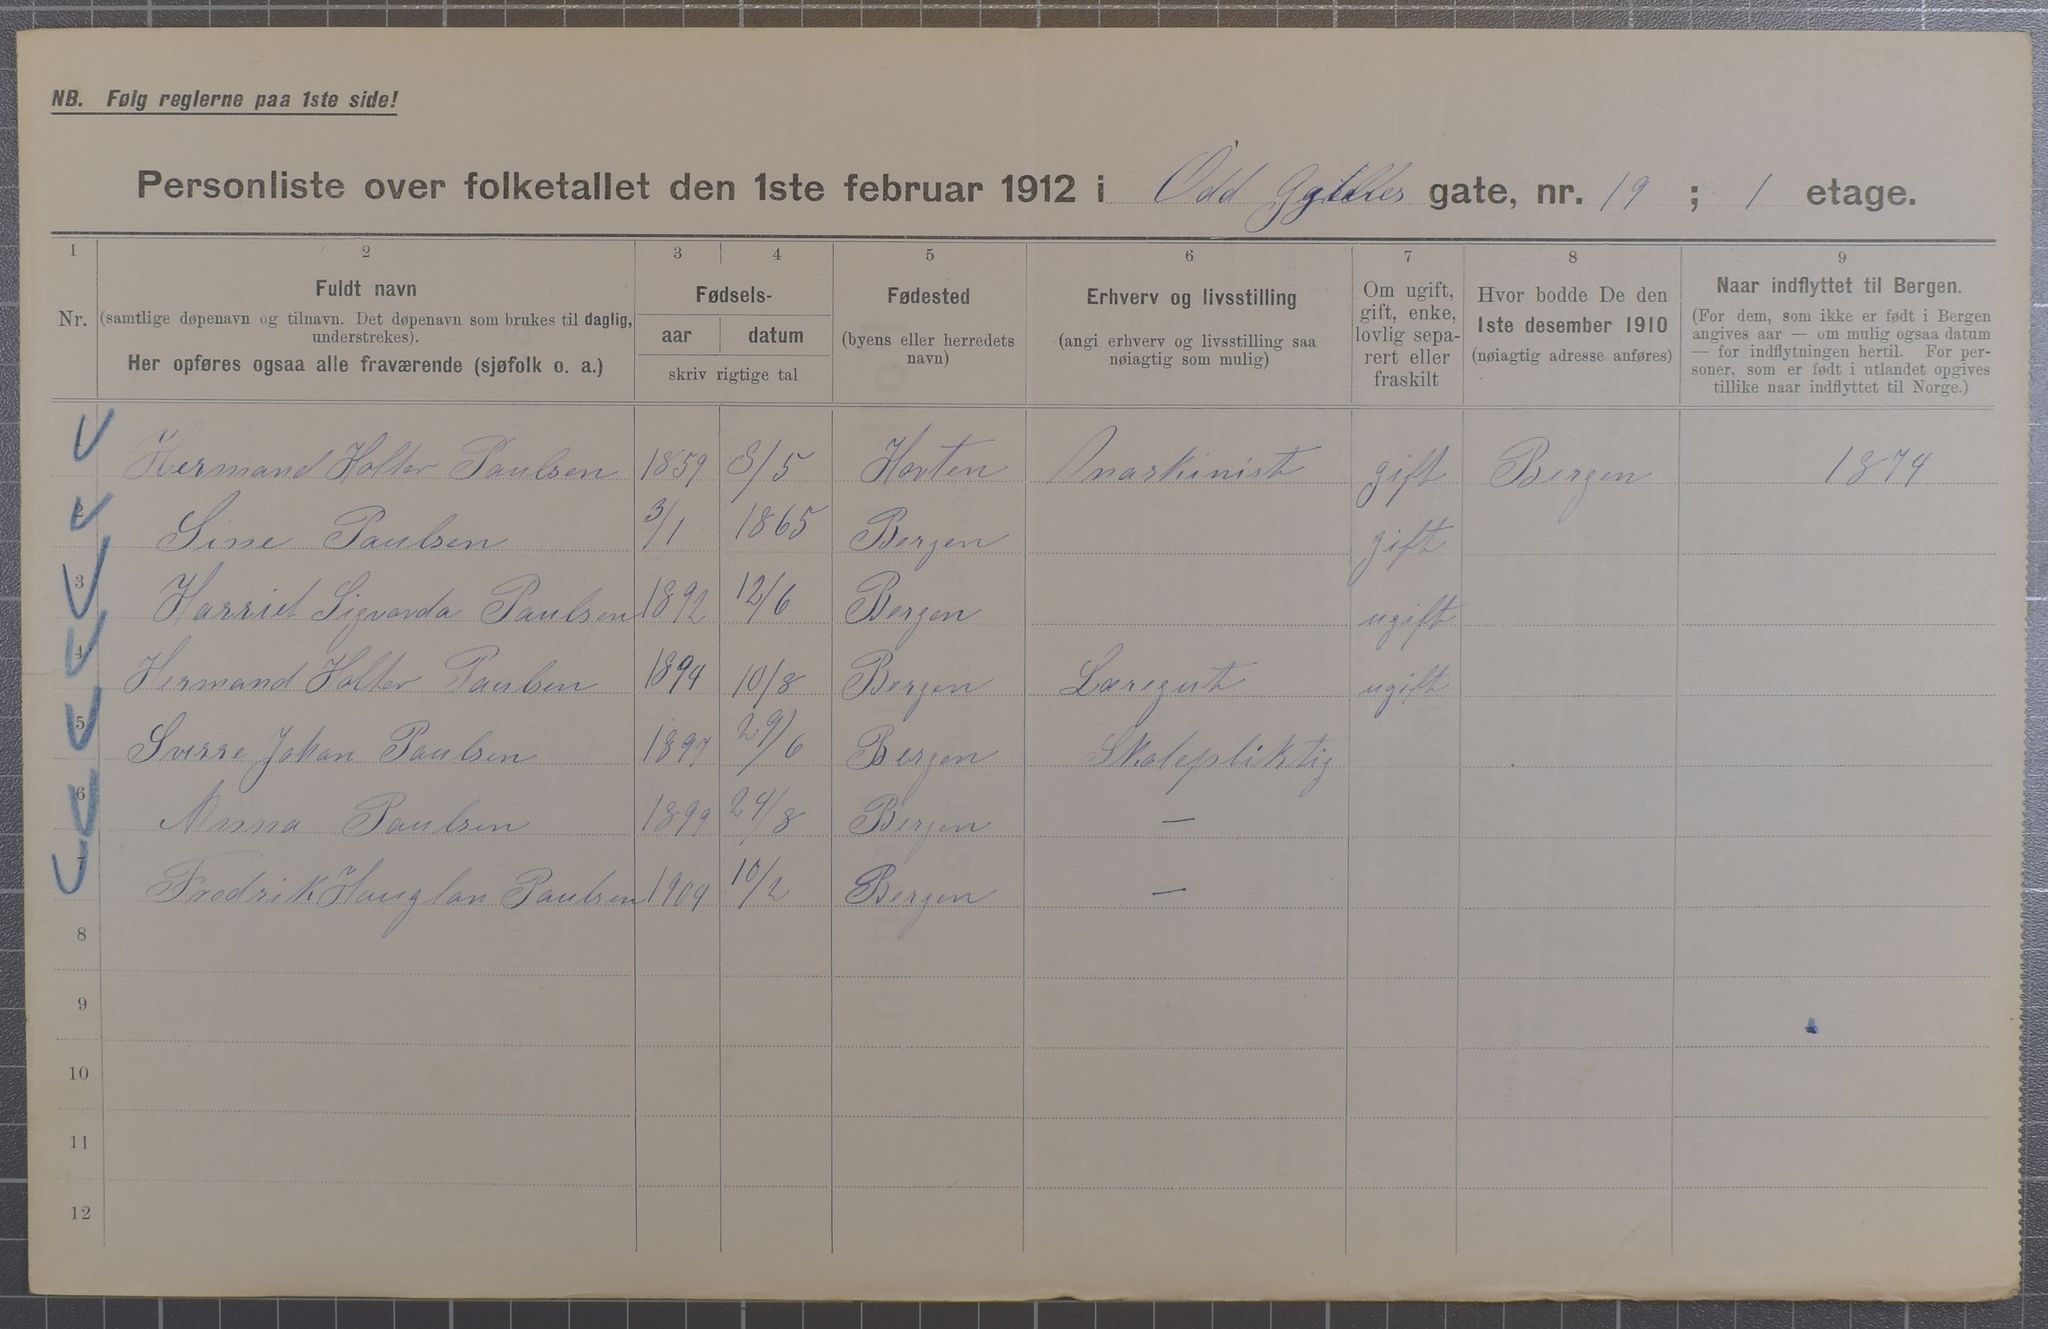 NB. Følg reglerne paa 1ste side!
Personliste over folketallet den 1ste februar 1912 i Odd gate, nr. 19 ; 1 etage.
1 2 3 4 5 6 7 8 9
Nr.
Fuldt navn
(samtlige døpenavn og tilnavn. Det døpenavn som brukes til daglig,
understrekes).
Her opføres ogsaa alle fraværende (sjøfolk o. a.)
Fødsels-
aar datum
skriv rigtige tal
Fødested
(byens eller herredets
navn)
Erhverv og livsstilling
(angi erhverv og livsstilling saa
nøiagtig som mulig)
Om ugift,
gift, enke,
lovlig sepa-
rert eller
fraskilt
Hvor bodde De den
1ste desember 1910
(nøiagtig adresse anføres)
Naar indflyttet til Bergen.
(For dem, som ikke er født i Bergen
angives aar — om mulig ogsaa datum
— for indflytningen hertil. For per-
soner, som er født i utlandet opgives
tillike naar indflyttet til Norge.)
1 Hermand Holter Paulsen 1859 8/5 Horten Maskinist gift Bergen 1874
2 Sine Paulsen 3/1 1865 Bergen gift
3 Harriet Sigvarda Paulsen 1892 12/6 Bergen ugift
4 Hermand Holter Paulsen 1894 10/8 Bergen Læregut ugift
5 Sverre Johan Paulsen 1897 29/6 Bergen Skolepliktig
6 Anna Paulsen 1899 24/8 Bergen —
7 Fredrik Hauglan Paulsen 1904 10/2 Bergen —
8
9
10
11
12